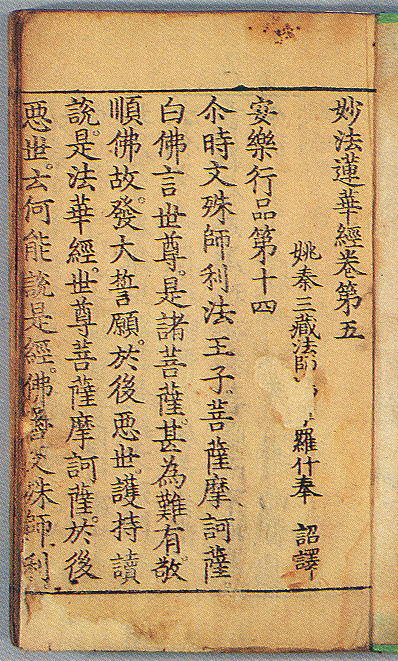 妙法蓮華經卷第五
姚秦三藏法師羅什奉 詔譯
宴樂行品第十四
尒時文殊師利法王子。菩薩摩訶薩
白佛言世尊。是諸菩薩。甚為難有。敬
順佛故。發大誓願。扵後悪世。護持讀
說是法華經。世尊菩薩摩訶薩。扵後
悪世。云何能說是經。佛告文殊師利